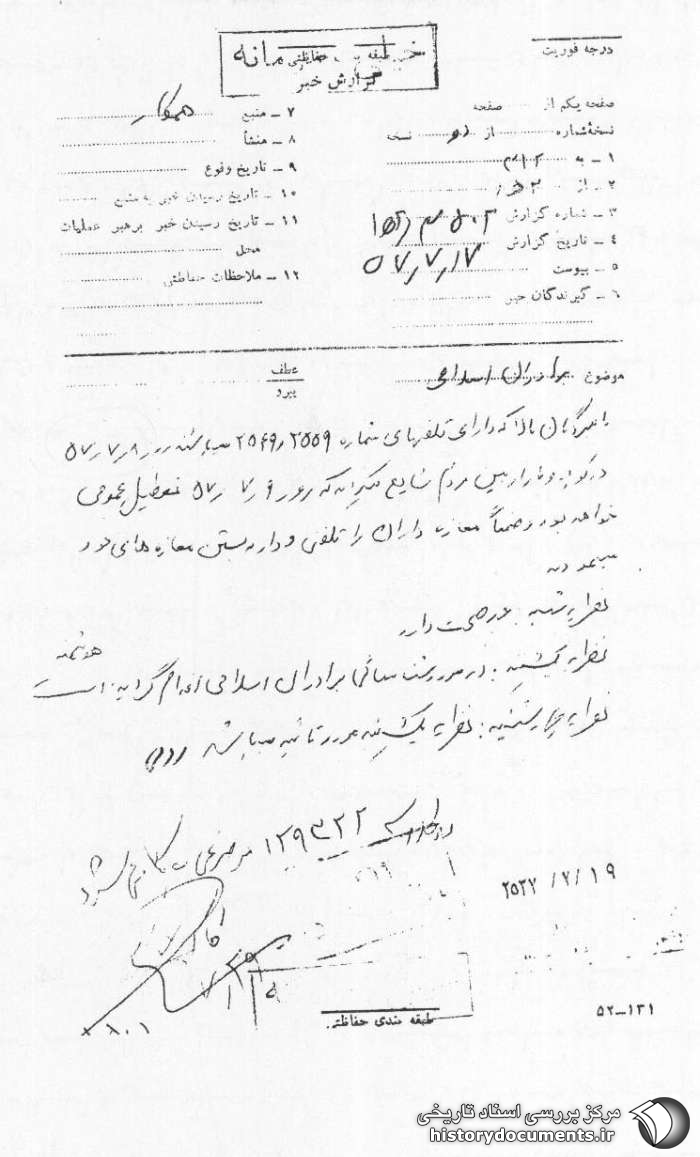 طبقه بندی حفاظتی
گزارش خبر
درجه فوریت
صفحه یکم از صفحه
نسخه شماره از نسخه
۱ ـ به ۳۱۲
۲ ـ از
۳ ـ شماره گزارش
۴ ـ تاریخ گزارش ۵۷/۷/۱۷
۵ ـ پیوست
۶ ـ گیرندگان خبر
۷ ـ منبع همکار
۸ ـ منشأ
۹ ـ تاریخ وقوع
۱۰ ـ تاریخ رسیدن خبر به منبع
۱۱ ـ تاریخ رسیدن خبر برهبر عملیات
محل
۱۲ ـ ملاحظات حفاظتی
موضوع برادران اسلامی
عطف
پیرو
نامبردگان بالا که دارای تلفنهای شماره ۲۵۵۹ و ۲۵۴۹ میباشند روز ۵۷/۷/۸
در کوچه و بازار بین مردم شایع میکردند که روز ۵۷/۷/۹ تعطیل عمومی
خواهد بود و ضمناً مغازه داران را تلفنی وادار به بستن مغازه های خود
مینمودند
نظریه شنبه: خبر صحت دارد
نظریه یکشنبه: در مورد شناسائی برادران اسلامی اقدام گردیده است
نظریه چهارشنبه: نظریه یکشنبه مورد تائید میباشد
۱۲۹۳۲۲
۲۵۳۷/۷/۱۹
۸۰۱
طبقه بندی حفاظتی
۵۲ــ۱۳۱
مرکز بررسی اسناد تاریخی
historydocuments.ir